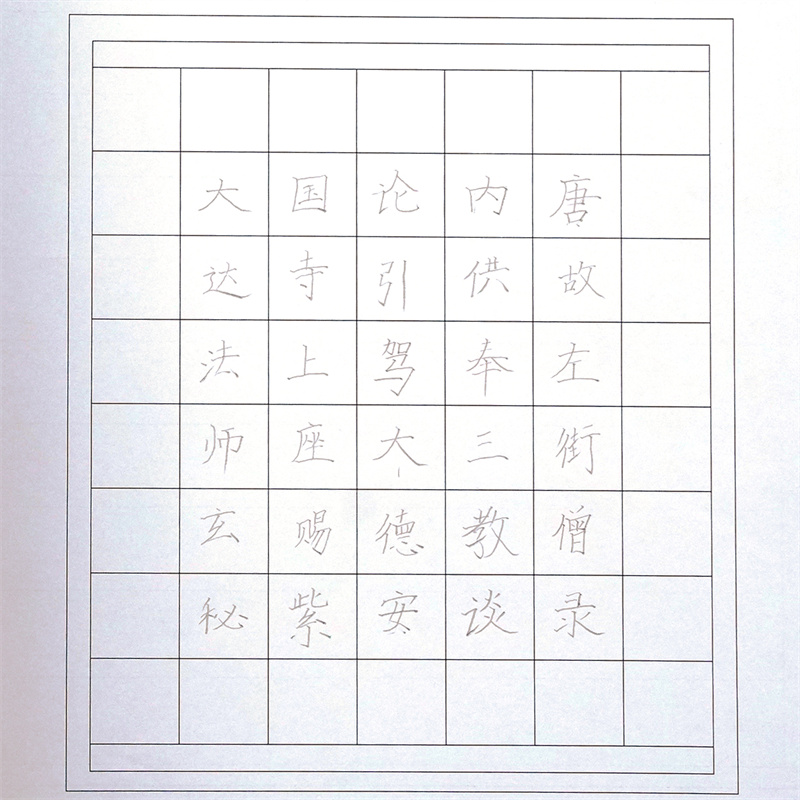 唐故左街僧录
内供奉三教谈
论引驾大德安
国寺上座赐紫
大达法师玄秘